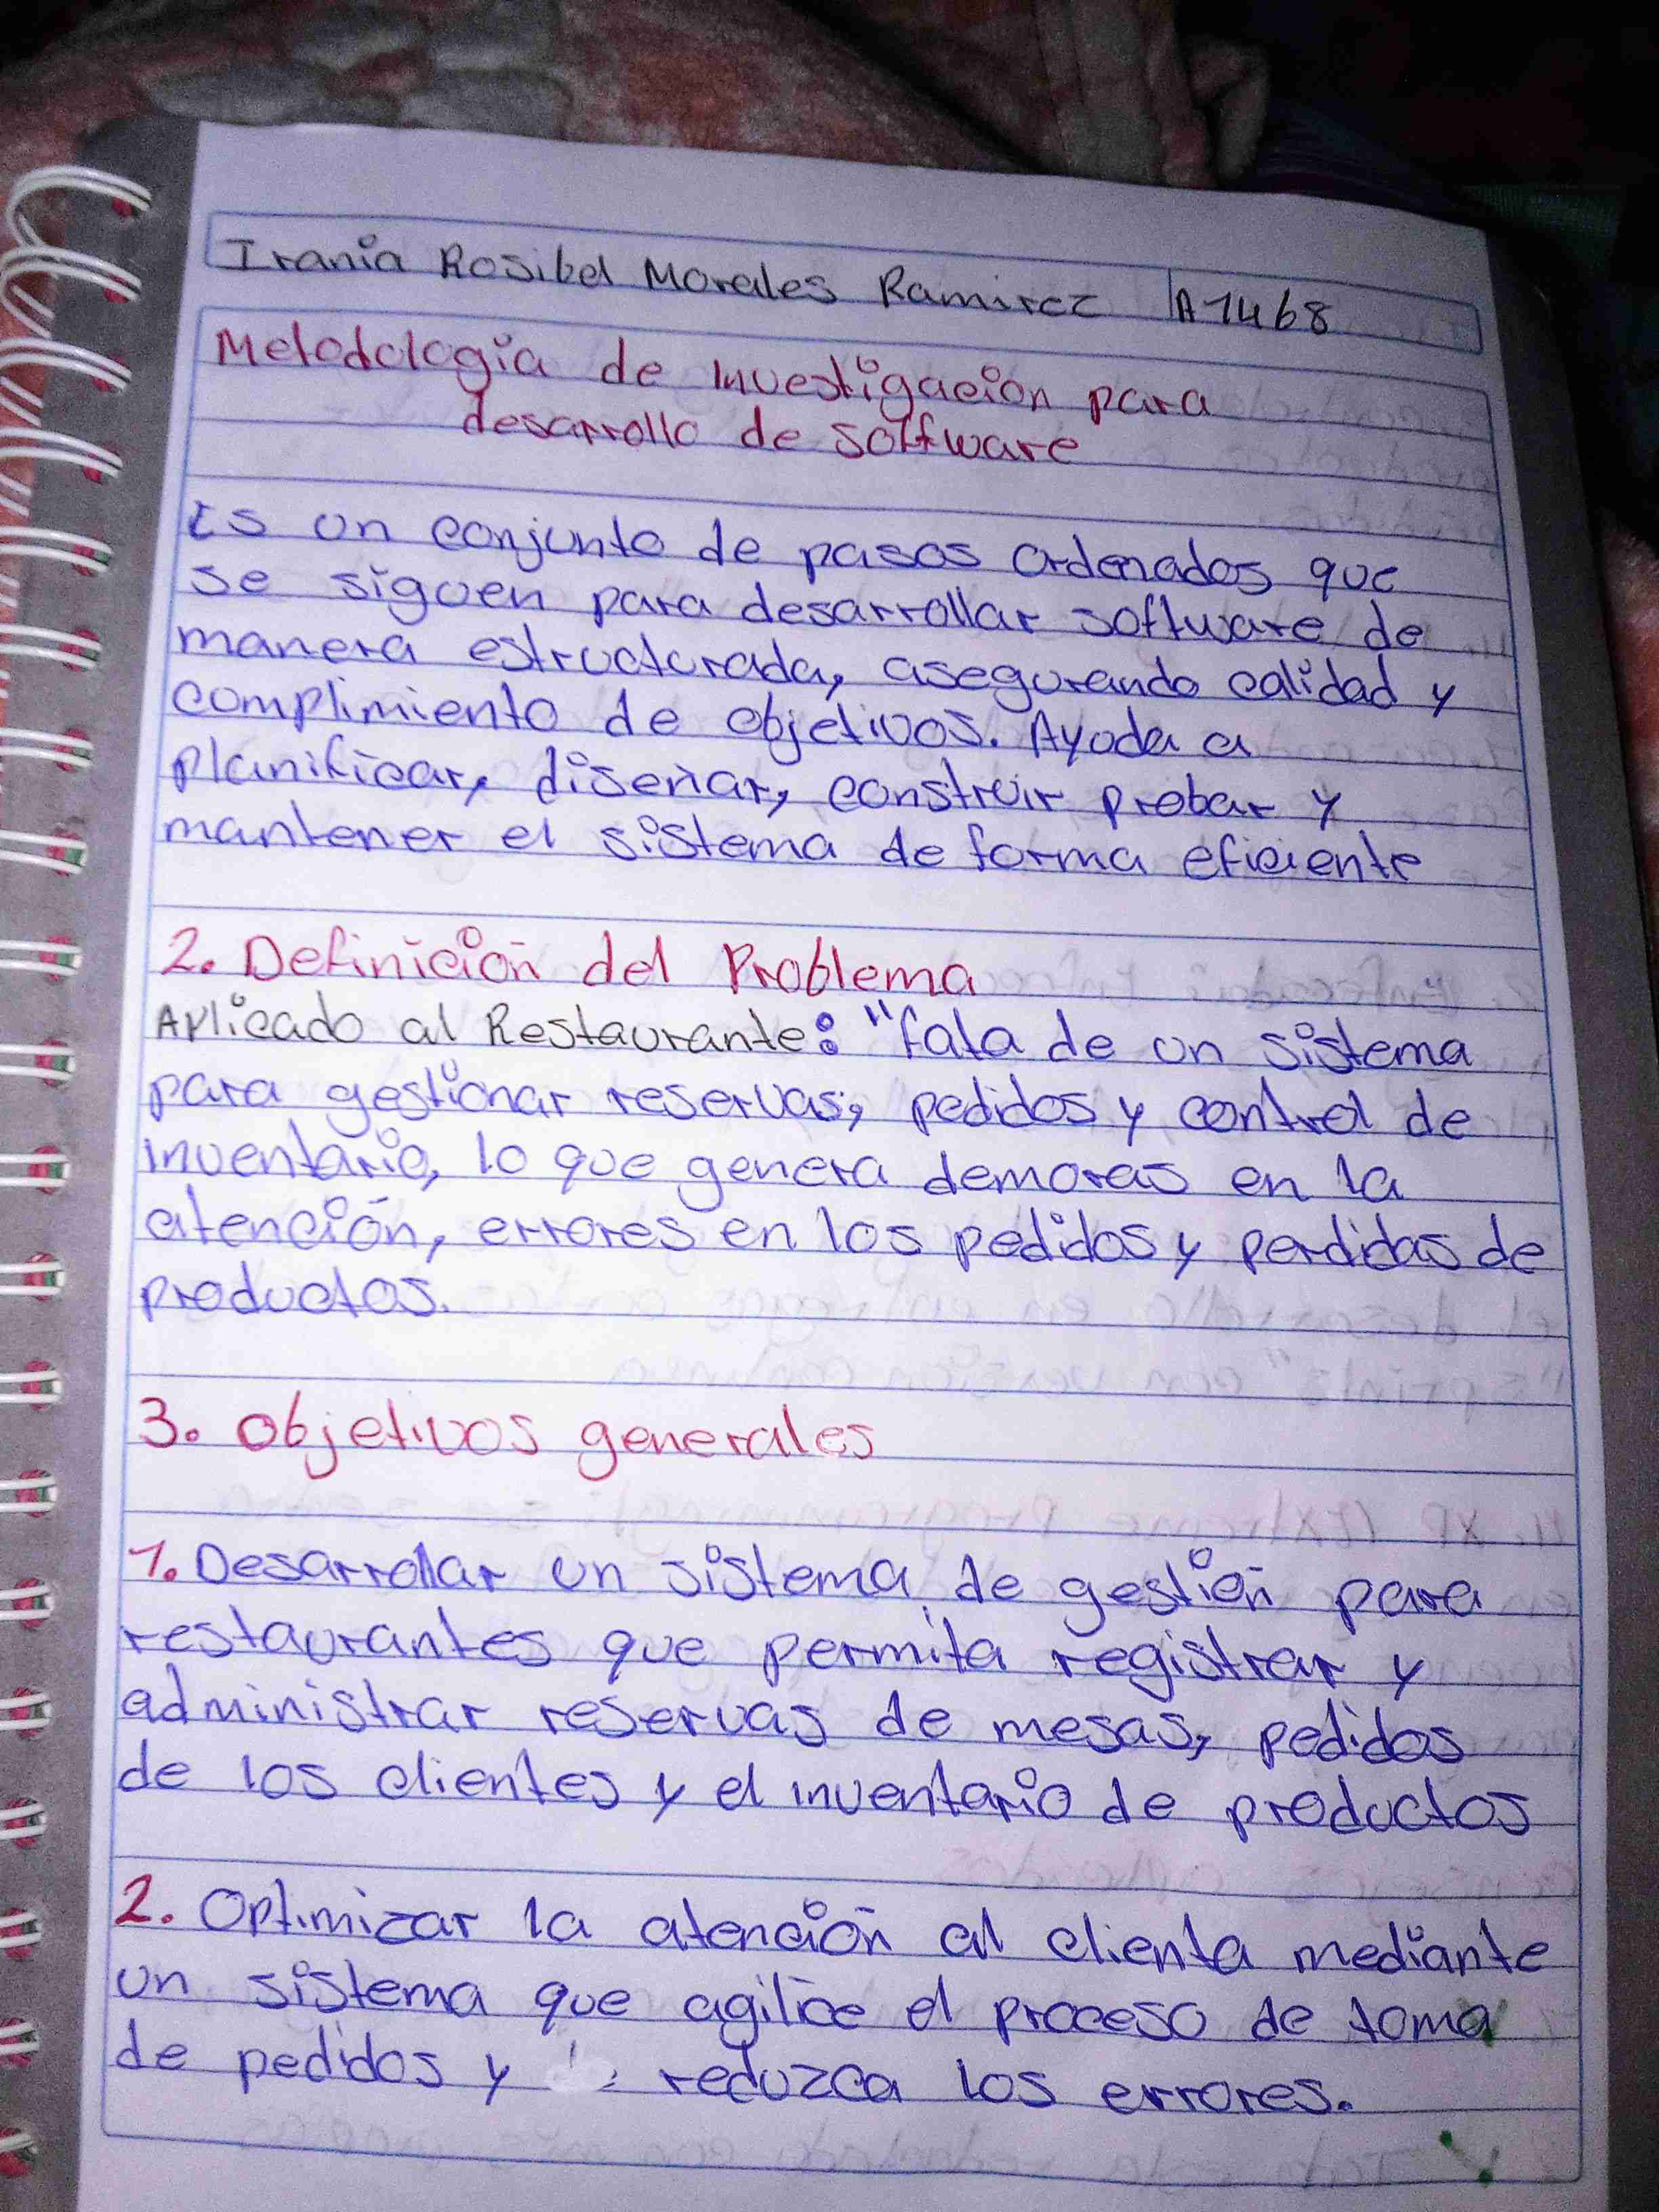 Irania Rosibel Morales Ramirez A1468
Metodologia de investigación para
desarrollo de software
Es un conjunto de pasos ordenados que
se siguen para desarrollar software de
manera estructurada, asegurando calidad y
complimiento de objetivos. Ayuda a
planificar, diseñar, construir probar y
mantener el sistema de forma eficiente
2. Definición del Problema
Aplicado al Restaurante: "fata de un sistema
para gestionar reservas, pedidos y control de
inventario, lo que genera demoras en la
atención, errores en los pedidos y perdidas de
productos.
3. Objetivos generales
1. Desarrollar un sistema de gestión para
restaurantes que permita registrar y
administrar reservas de mesas, pedidos
de los clientes y el inventario de productos
2. Optimizar la atención al clienta mediante
un sistema que agilice el proceso de toma
de pedidos y reduzca los errores.